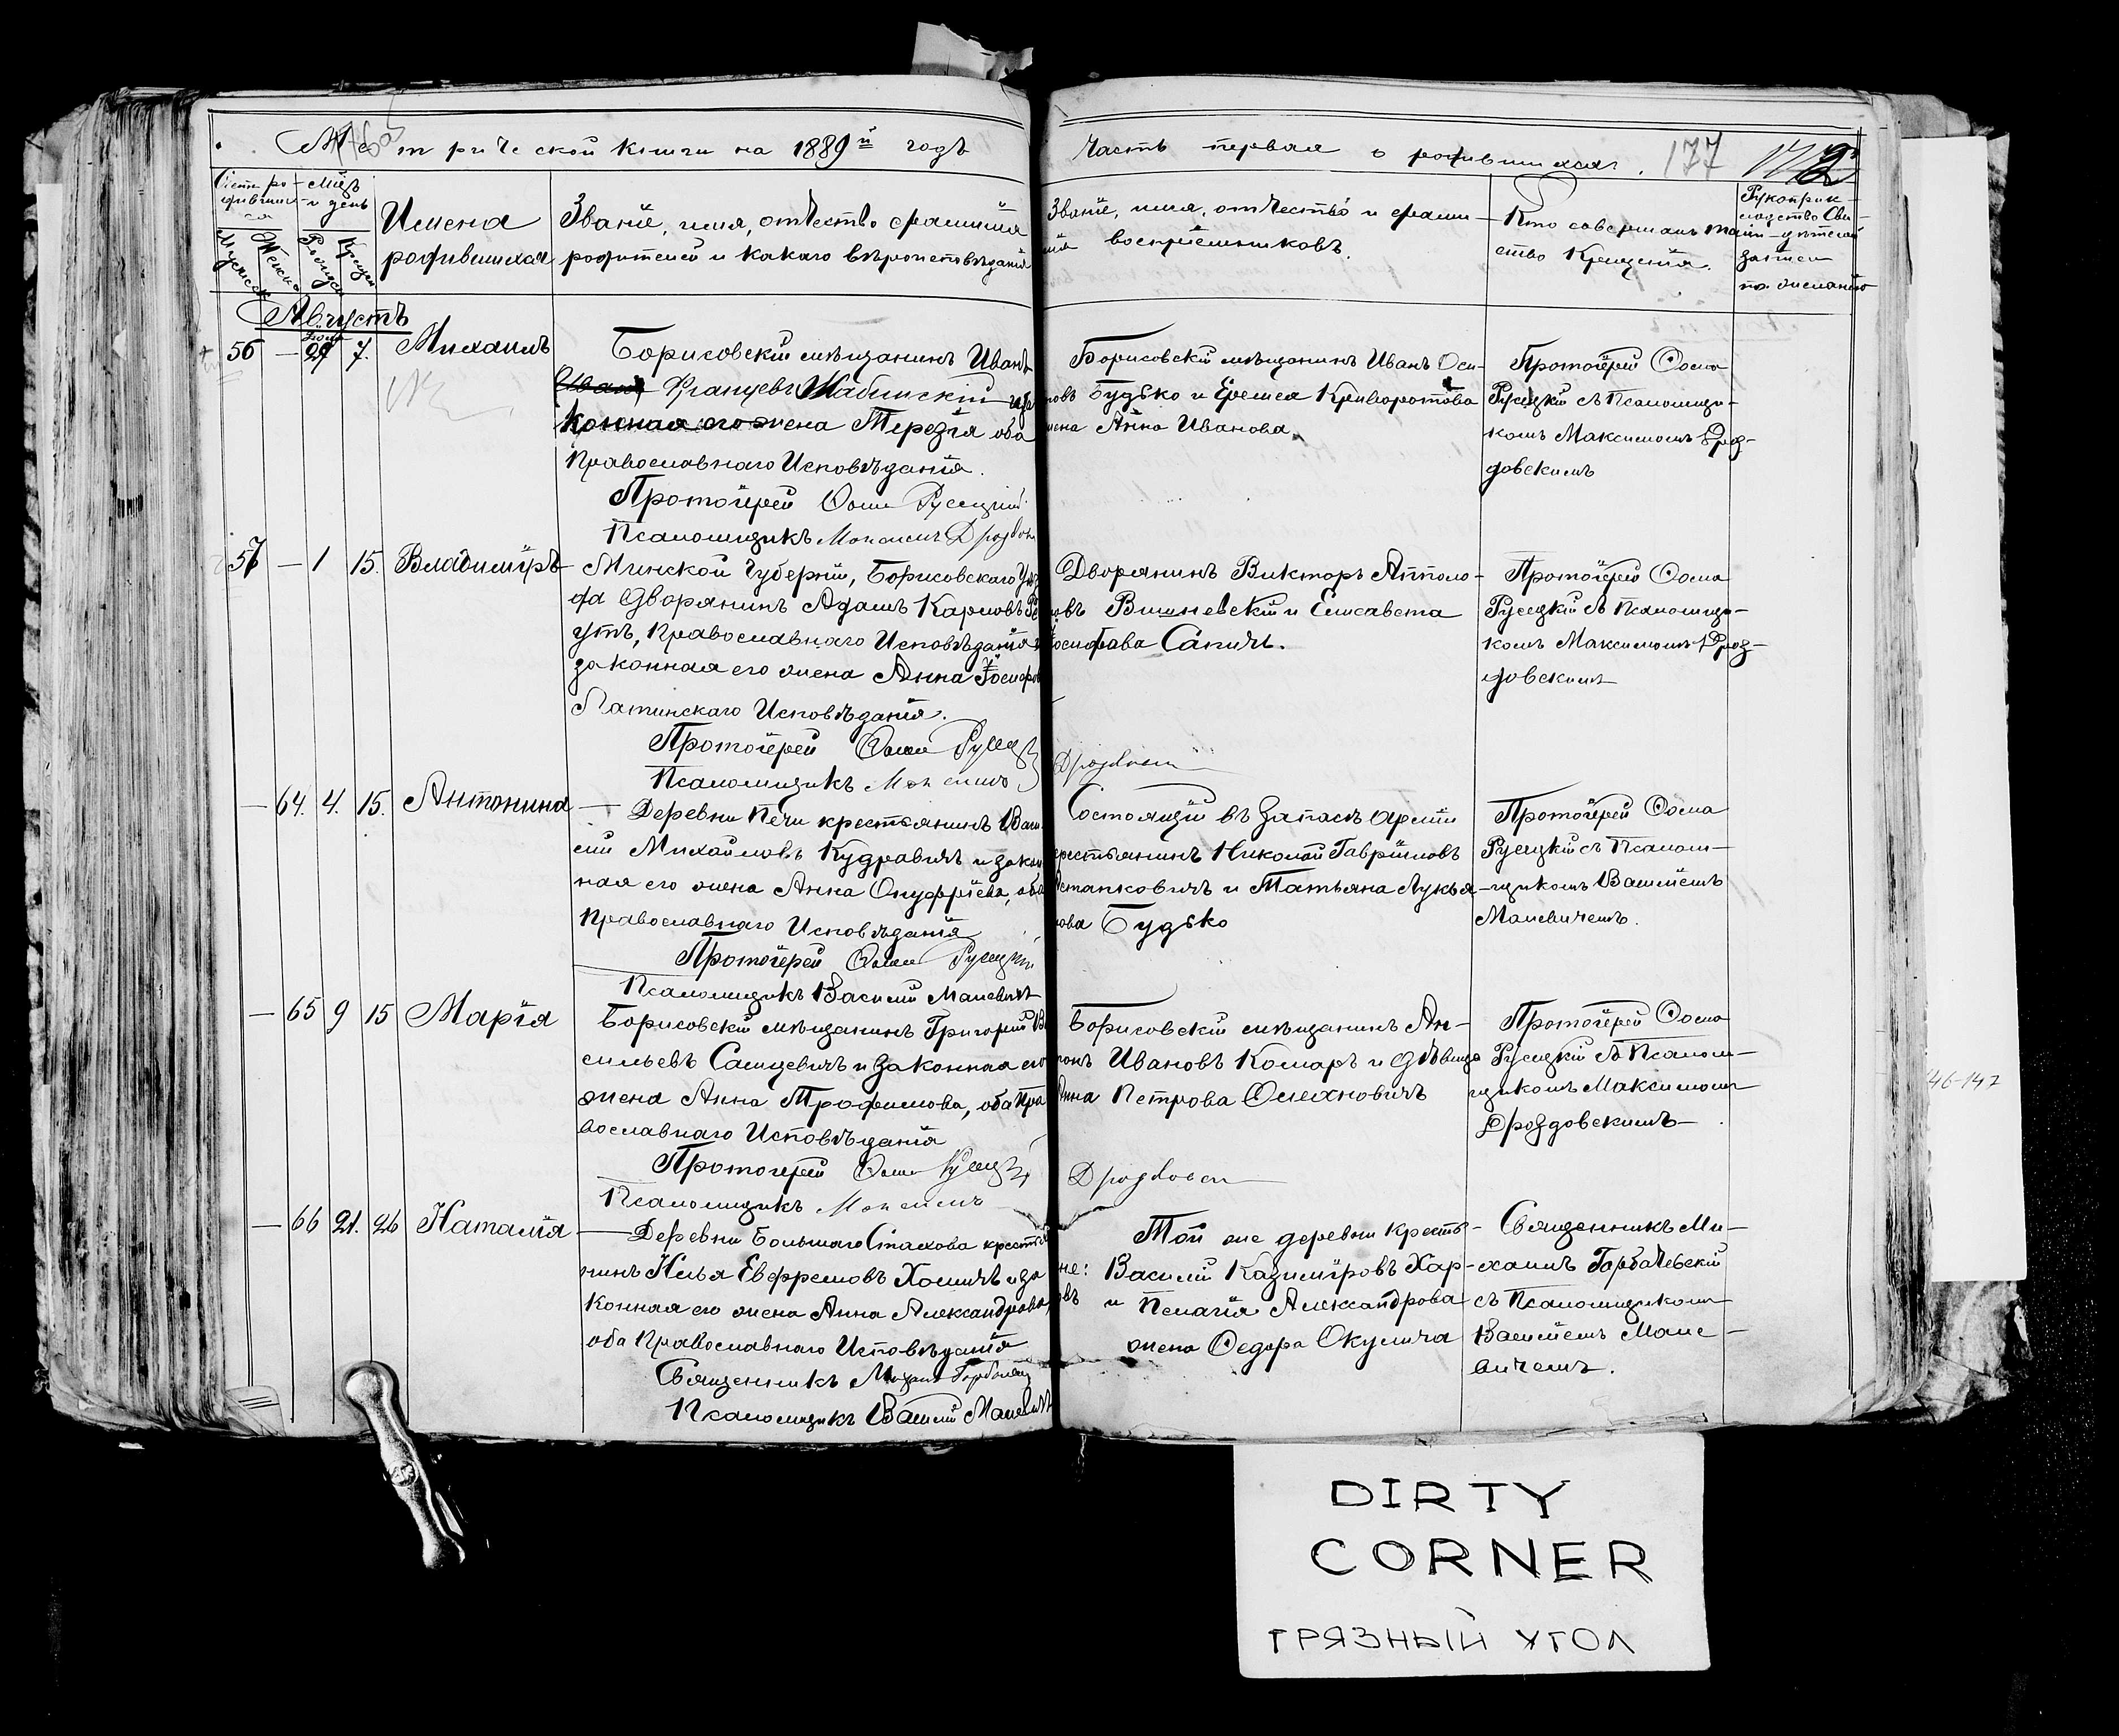 Метрической книги на 1889й годъ
Часть первая о родившихся.
177
Имена
родившихся
Званіе, имя, отчество фамилія
родителей и какого вѣроисповѣданія
Званіе, имя, отчество и фами-
лія воспріемниковъ.
Кто совершалъ таин-
ство Крещенія.
Рукоприк-
ладство Сви-
дѣтелей
записи
по желанію
Августъ
56 — 29 7. Михаилъ
Борисовскій мѣщанинъ Иванъ
Францевъ Жабинскій и за
конная его жена Терезія оба
Православнаго Исповѣданія.
Протоіерей Ѳома Русецкій
Псаломщикъ Максимъ Дроздов
Борисовскій мѣщанинъ Иванъ Оси-
повъ Будько и Еремея Криворотова
жена Анна Иванова.
Протоіерей Ѳома
Русецкій съ Псаломщи-
комъ Максимомъ Дроз-
довскимъ
57 — 1 15. Владиміръ
Минской Губерніи, Борисовскаго Уѣз
да Дворянинъ Адамъ Карловъ
утъ, Православнаго Исповѣданія и
законная его жена Анна Іосифов
Латинскаго Исповѣданія.
Протоіерей Ѳома Русец
Псаломщикъ Максимъ Дроздовскій
Дворянинъ Викторъ Апполо-
овъ Вишневскій и Елисавета
Іосифова Сапичъ.
Протоіерей Ѳома
Русецкій съ Псаломщи-
комъ Максимомъ Дроз-
довскимъ
— 64. 4. 15. Антонина
Деревни Печи крестьянинъ Васи
лій Михайловъ Кудравичъ и закон
ная его жена Анна Онуфріева, оба
Православнаго Исповѣданія
Протоіерей Ѳома Русецкій
Псаломщикъ Василій Малевичъ
Состоящій въ запасѣ арміи
крестьянинъ Николай Гавріиловъ
Остапковичъ и Татьяна Лукья-
нова Будько
Протоіерей Ѳома
Русецкій съ Псалом-
щикомъ Василіемъ
Малевичемъ.
— 65 9 15 Марія
Борисовскій мѣщанинъ Григорій Ва
сильевъ Самцевичъ и законная его
жена Анна Трофимова, оба Пра
вославнаго Исповѣданія
Протоіерей Ѳома Русец
Псаломщикъ Максимъ Дроздовскій
Борисовскій мѣщанинъ Ан-
тонъ Ивановъ Комаръ и дѣвица
Анна Петрова Олехновичъ
Протоіерей Ѳома
Русецкій съ Псалом-
щикомъ Максимомъ
Дроздовскимъ
— 66 21. 26 Наталія
Деревни Большаго Стахова крестья
нинъ Илья Евфремовъ Хомичъ и за
конная его жена Анна Александрова,
оба Православнаго Исповѣданія
Священникъ Михаилъ Горбачевс
Псаломщикъ Василій Малевичъ
Той же деревни кресть-
не: Василій Казиміровъ Хар-
овъ и Пелагія Александрова
жена Ѳедора Окулича
Священникъ Ми-
хаилъ Горбачевскій
съ Псаломщикомъ
Василіемъ Мале-
вичемъ.
146-147
DIRTY
CORNER
ГРЯЗНЫЙ УГОЛ